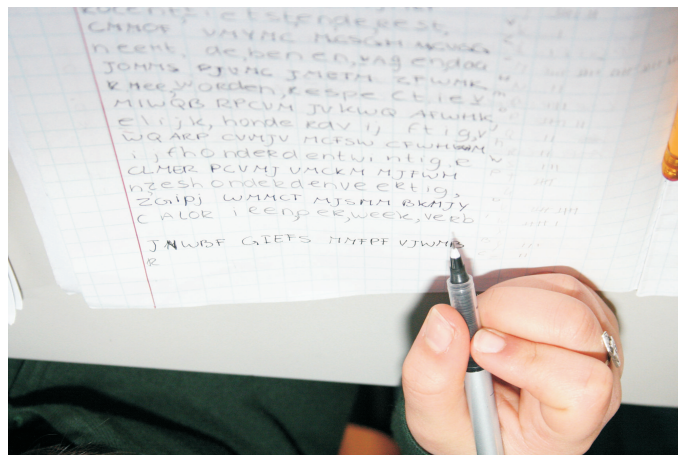 etstenderest,
CMMOF VMYMC MCSGM
neemt de, benen, ragendaa
JOMMS PJVMC JMETM ZFWMK
Rmee, worden, respectiev
MIWQB RPCVM JVKWQ AFWMK
elijk, honderdvijftig, v
WQARP CVMJV MCFSW CFWM
ijfhonderdentwintig, e
CLMER PCVMJ VMCKM MJFWM
nzeshonderdenveertig,
ZGIPJ WMMCT MJSMM BKMJY
CALOR ieenper, week, verb
JNWBF GIEFS MMFPF VJWMB
R